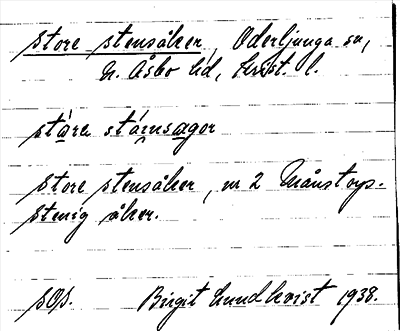 Store stensåker, Oderljunga sn,
N. Åsbo hd, Krist. l.
stǡra stá̄nsagor
Store stensåker, nr 2 Månstorp.
Stenig åker.
sOp. Birgit Lundkvist 1938.